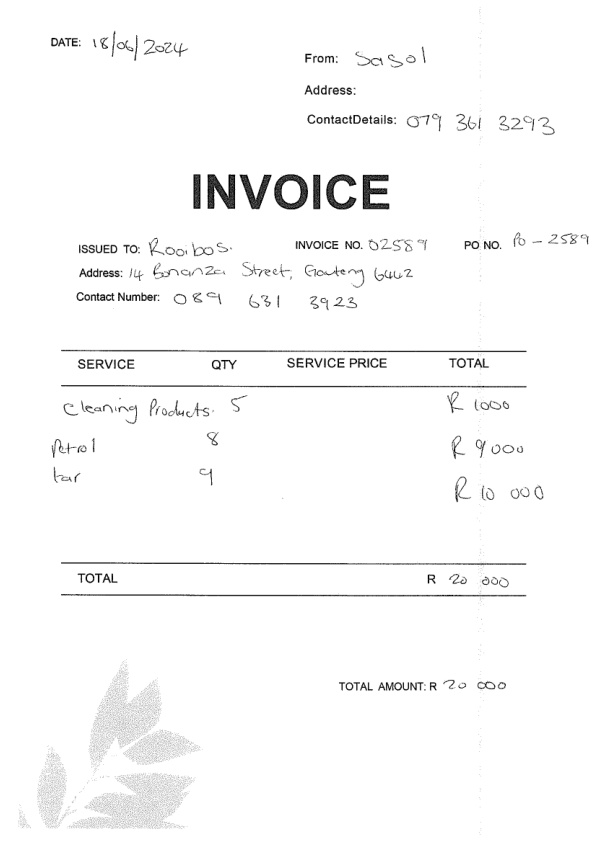 DATE: 18/06/2024
From: Sasol
Address:
ContactDetails: 079 361 3293
INVOICE
ISSUED TO: Rooibos. INVOICE NO. 02589 PO NO. Po - 2589
Address: 14 Bonanza Street, Gauteng 6442
Contact Number: 089 631 3923
SERVICE QTY SERVICE PRICE TOTAL
Cleaning Products. 5 R 1000
Petrol 8 R 9 000
tar 9 R 10 000
TOTAL R 20 000
TOTAL AMOUNT: R 20 000